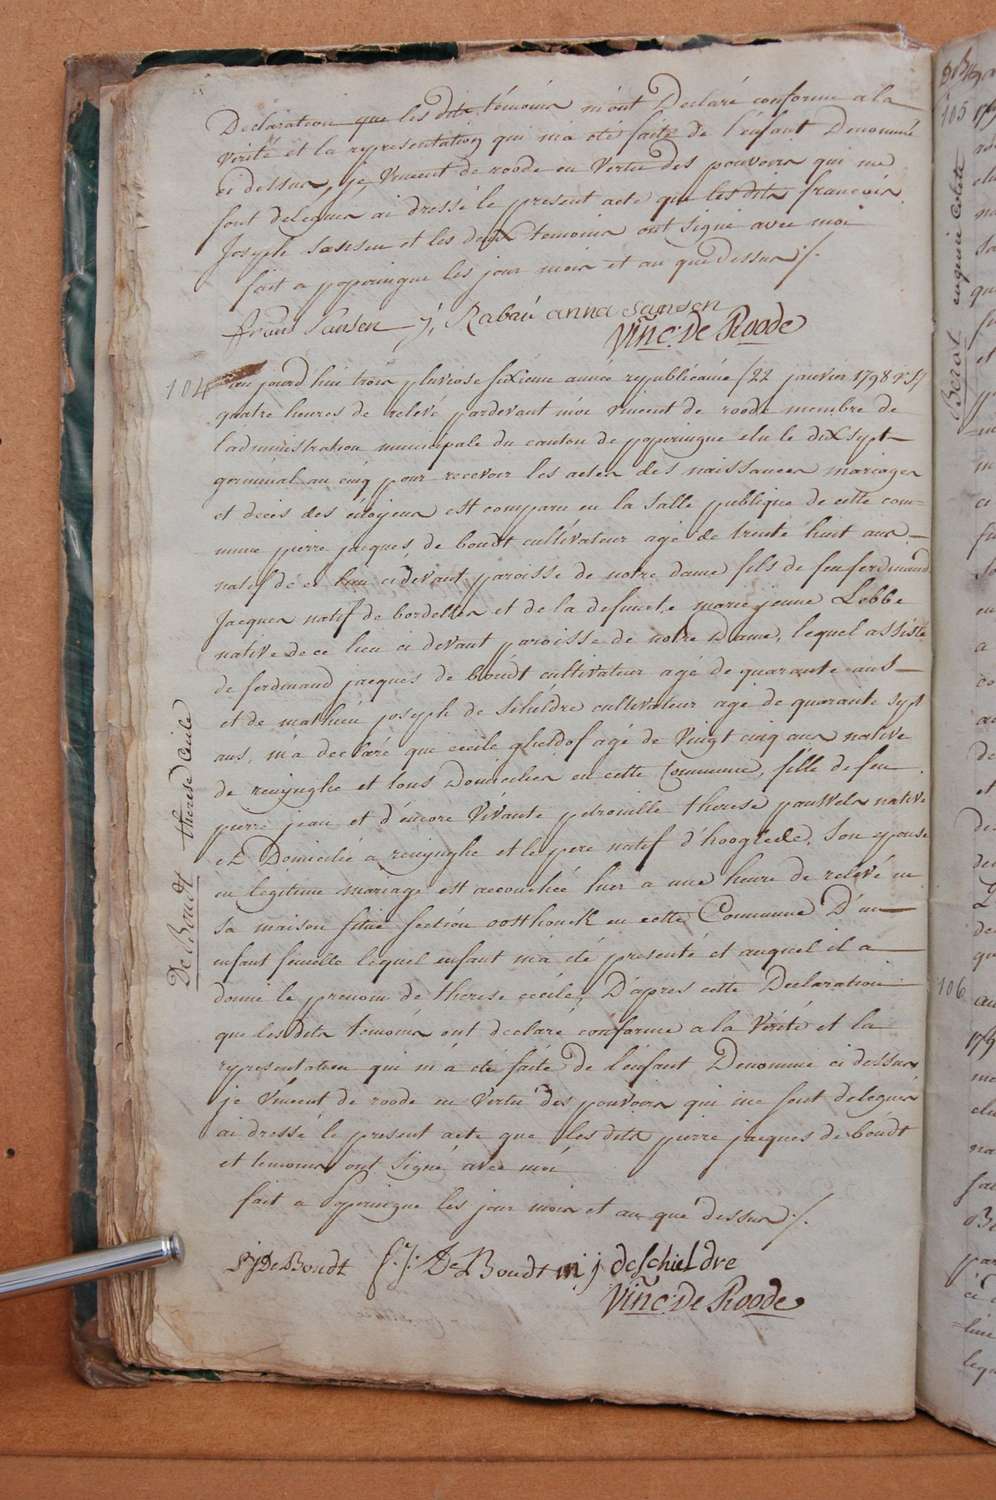 Déclaration que les dits témoins m'ont Declaré conforme a la
verité et la representation qui m'a été faite de l'enfant Denommé
ci dessus, je vincent de roode en vertu des pouvoirs qui me
sont delegués ai dressé le present acte que les dits francois
Joseph Sansen et les deux temoins ont signé avec moi
fait a poperingue les jour mois et an que dessus /.
frans Sansen J, Rabau anna sansen
Vinc: De Roode
104 aujourd'hui trois pluviose sixieme année republicaine (22 janvier 1798 v:s)
quatre heures de relevé pardevant moi vincent de roode membre de
l'administration municipale du canton de poperingue elu le dix sept
germinal an cinq pour recevoir les actes des naissances mariages
et decès des citoyens est comparu en la salle publique de cette com=
mune pierre jacques de boudt cultivateur agé de trente huit ans
natif de ce lieu ci devant paroisse de notre dame fils de feu ferdinand
Jacques natif de bordelles et de la defuncte marie jeune Lobbe
native de ce lieu ci devant paroisse de notre Dame, lequel assisté
de ferdinand jacques de boudt cultivateur agé de quarante ans
et de mathieu joseph de schildre cultivateur agé de quarante sept
ans, m'a declaré que cecile gheldof agé de vingt cinq ans native
de reninghe et tous Domiciliés en cette Commune, fille de feu
pierre jean et d'encore vivante petronille therese pauwels native
et Domicilié a reninghe et le pere natif d'hooglede, son epouse
en legitime mariage est accouchée hier a une heure de relevé en
sa maison située section oosthouck en cette Commune D'un
enfant femelle lequel enfant m'a été presenté et auquel il a
donné le prenom de therese cécile; D'après cette Declaration
que les dits temoins ont declaré conforme a la Vérité et la
representation qui m'a été faite De l'enfant Denommé ci dessus
je Vincent de roode en vertu des pouvoirs qui me sont delegués
ai dressé le present acte que les dits pierre jacques de boudt
et temoins ont signé avec moi
fait a Poperingue les jour mois et an que dessus /.
P J De Boudt f. J. De Boudt m j deschieldre
Vinc: De Roode
De Boudt therese Cecile
Berot eugenie Colete
105
106